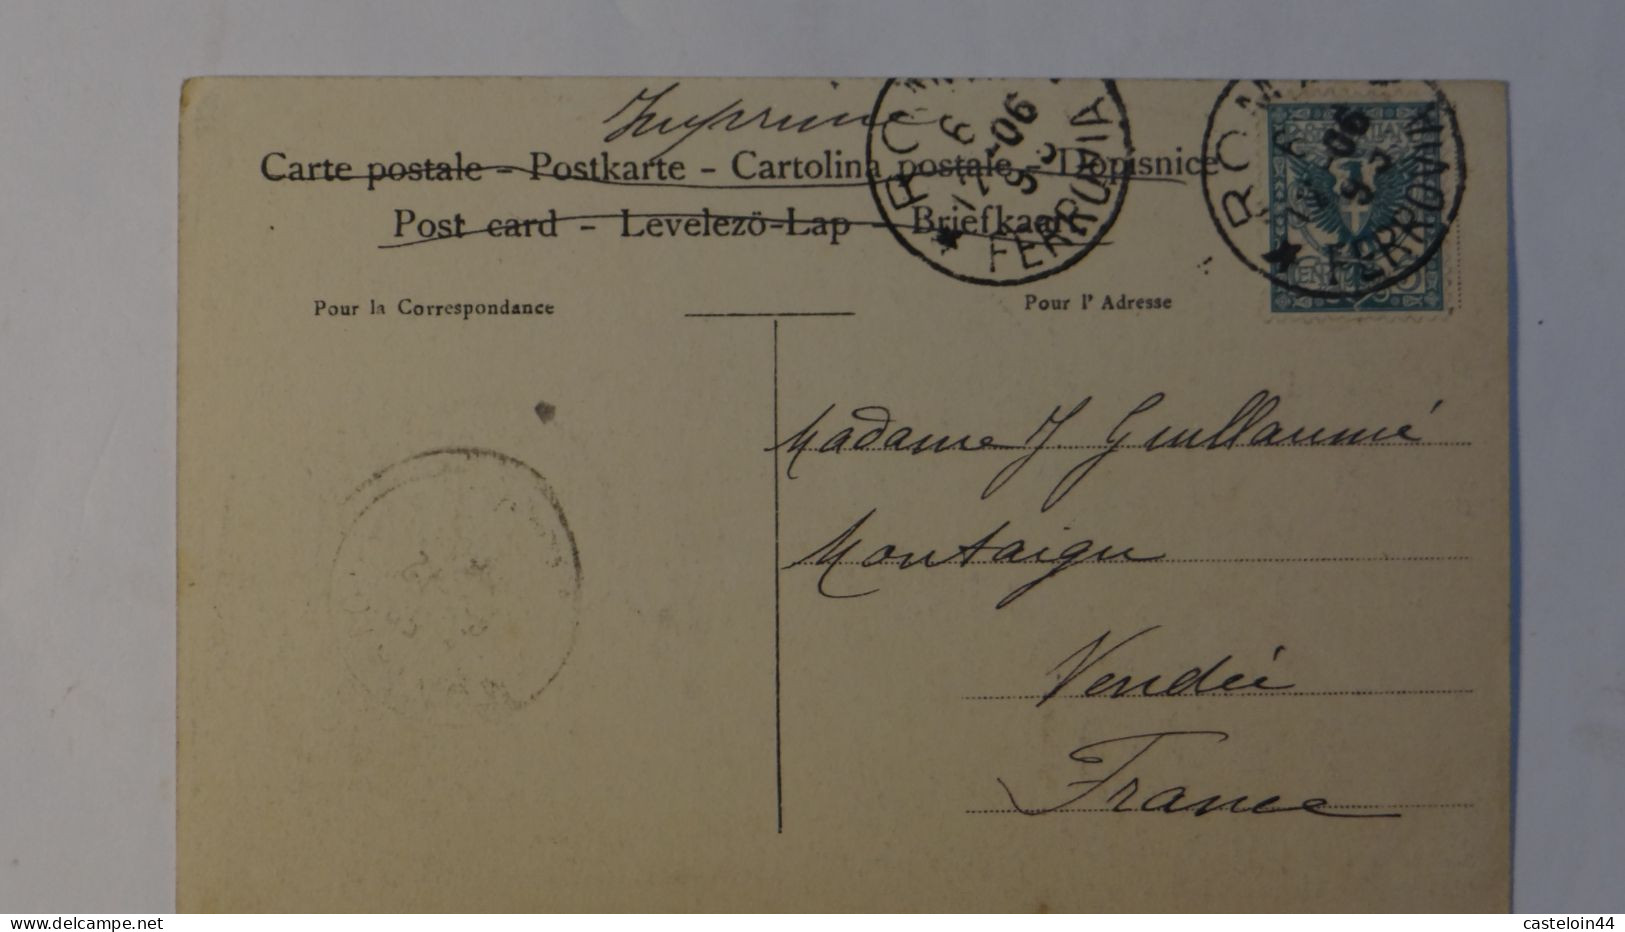 Imprimé
Carte postale - Postkarte - Cartolina postale - Dopisnice
Post card - Levelezö-Lap - Briefkaart
ROMA
17 6 -06 9
FERROVIA
ROMA
-06
FERROVIA
Pour la Correspondance
Pour l' Adresse
Madame J Guillaumé
Montaigu
Vendée
France
https://www.delcampe.net
casteloin44